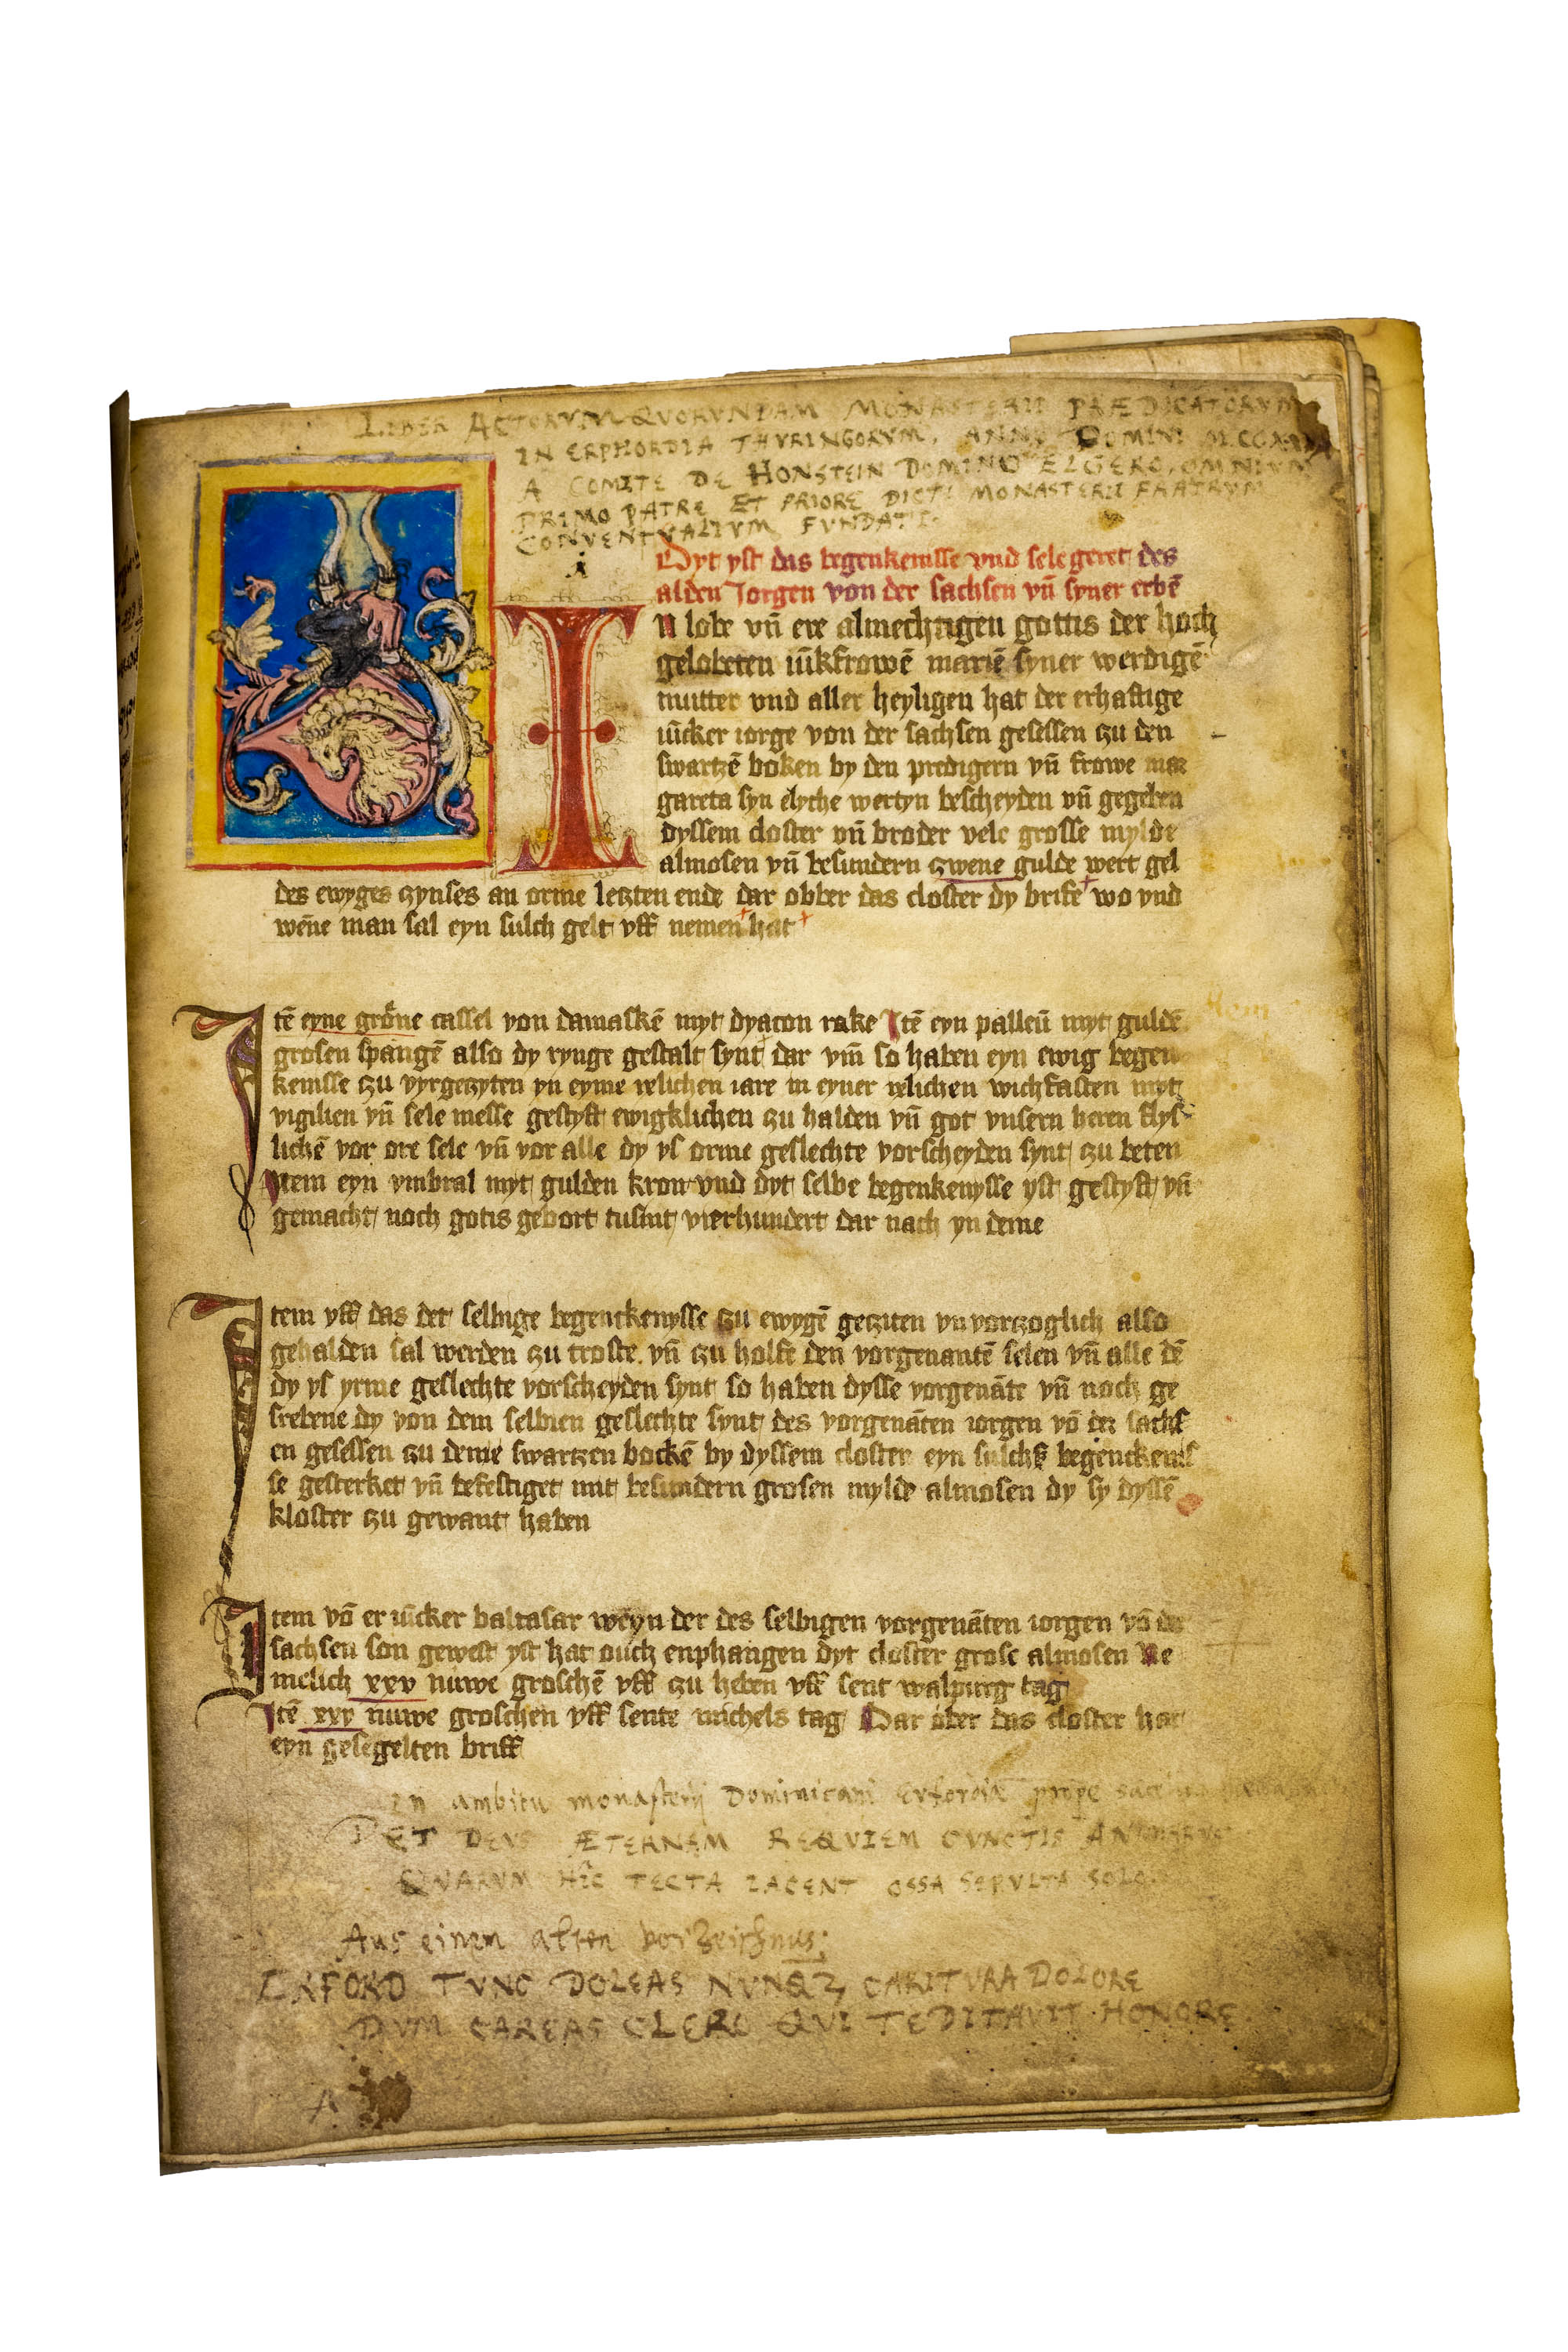 LIBER ACTORVM QVORVNDAM MONASTERII PRÆDICATORVM
IN ERPHORDIA THVRINGORVM, ANNO DOMINI
A COMITE DE HONSTEIN DOMINO ELGERO, OMNIVM
PRIMO PATRE ET PRIORE DICTI MONASTERII FRATRVM
CONVENTVALIVM FVNDATI.
Dyt yst das begenkenisse vnd selegeret des
alden Jorgen von der sachsen vn̄ syner erbē
In lobe vn̄ ere almechtigen gottis der hoch
gelobeten iūkfrowē mariē syner werdigē
mutter vnd aller heyligen hat der erhaftige
iūcker iorge von der sachsen gesessen zu den
swartzē boken by den predigern vn̄ frowe mar
gareta syn elyche wertyn bescheyden vn̄ gegeben
dyssem closter vn̄ broder vele grosse mylde
almosen vn̄ besundern zwene gulde wert gel
des ewyges zynses an orme letzten ende dar obber das closter dy brife wo vnd
wēne man sal eyn sulch gelt vff nemen hat
Itē eyne grōne cassel von damaskē myt dyacon rake Itē eyn palleū myt guldē
grosen spangē also dy rynge gestalt synt dar vm̄ so haben eyn ewig begen
kenisse zu vyrgeczyten yn eyme iclichen iare in eyner iclichen wichfasten myt
vigilien vn̄ sele messe gestyft ewigklichen zu halden vn̄ got vnsern heren flys
lichē vor ore sele vn̄ vor alle dy ys orme geslechte vorscheyden synt zu beten
Item eyn vmbral myt gulden kron vnd dyt selbe begenkenysse yst gestyft vn̄
gemacht noch gotis gebort tusint vierhundert dar nach yn deme
Item vff das det selbige begenckenysse zu ewygē getziten vnvortzoglich also
gehalden sal werden zu troste vn̄ zu holfe den vorgenantē selen vn̄ alle dē
dy ys yrme geslechte vorscheyden synt so haben dysse vorgenāte vn̄ noch ge
screbene dy von dem selbien geslechte synt des vorgenāten iorgen vō der sachs
en gesessen zu deme swartzen bockē by dyssem closter eyn sulchs begenckenis
se gesterket vn̄ befestiget mit besundern grosen mylde almosen dy sy dyssē
kloster zu gewant haben
Item vō er iūcker baltasar weyn der des selbigen vorgenāten iorgen vō der
sachsen son gewest yst hat ouch enphangen dyt closter grose almosen Ne
melich xxv nuwe groschē vff zu heben vff sent walpurg tag
Itē xxv nuwe groschen vff sente michels tag Dar ober das closter hat
eyn gesegelten briff
In ambitu monasterij Dominicani Erfordiæ prope
DET DEVS ÆTERNAM REQVIEM CVNCTIS ANIMABVS
QVARVM HIC TECTA IACENT OSSA SEPVLTA SOLO.
Aus einem alten vorzeichnus:
ERFORD TVNC DOLEAS NVNQ3 CARITVRA DOLORE
DVM CAREAS CLERO QVI TE DITAVIT HONORE.
A